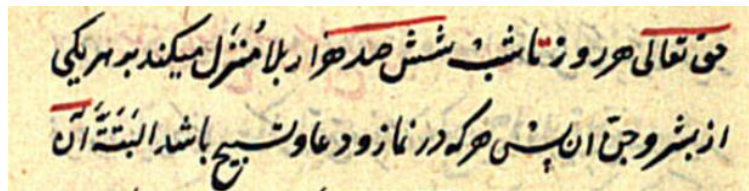 حق تعالی هر روز تا شب شش صد هزار بلا مُنزَل میکند بهر یکی
از بشر و جن ان پس هر که در نماز و دعا و تسبیح باشد البَتَةَ آن